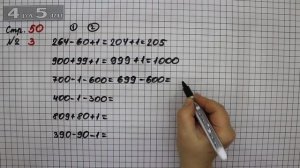 4 на 5.ru
Стр. 50
① ②
№ 3 264-60+1=204+1=205
900+99+1=999+1=1000
700-1-600=699-600=
400-1-300=
809+80+1=
390-90-1=